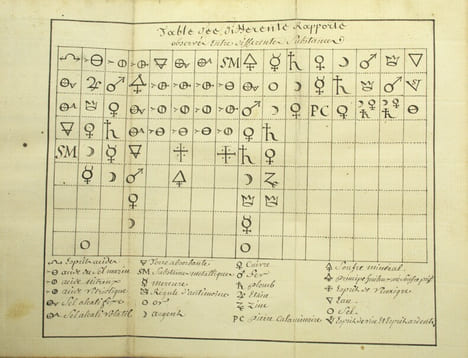 Table des differents Rapports
observés entre differentes Substances
SM
PC
SM
Esprits acides
Terre absorbante
Cuivre
Soufre mineral
acide du Sel marin
SM Substances metalliques
Fer
acide nitreux
mercure
plomb
Esprit de Vinaigre
acide vitriolique
Regule d'antimoine
Etain
Eau
Sel alcali fixe
or
Zinc
Sel
Sel alcali volatil
argent
PC Pierre Calaminaire
Esprit de vin et Esprits ardents